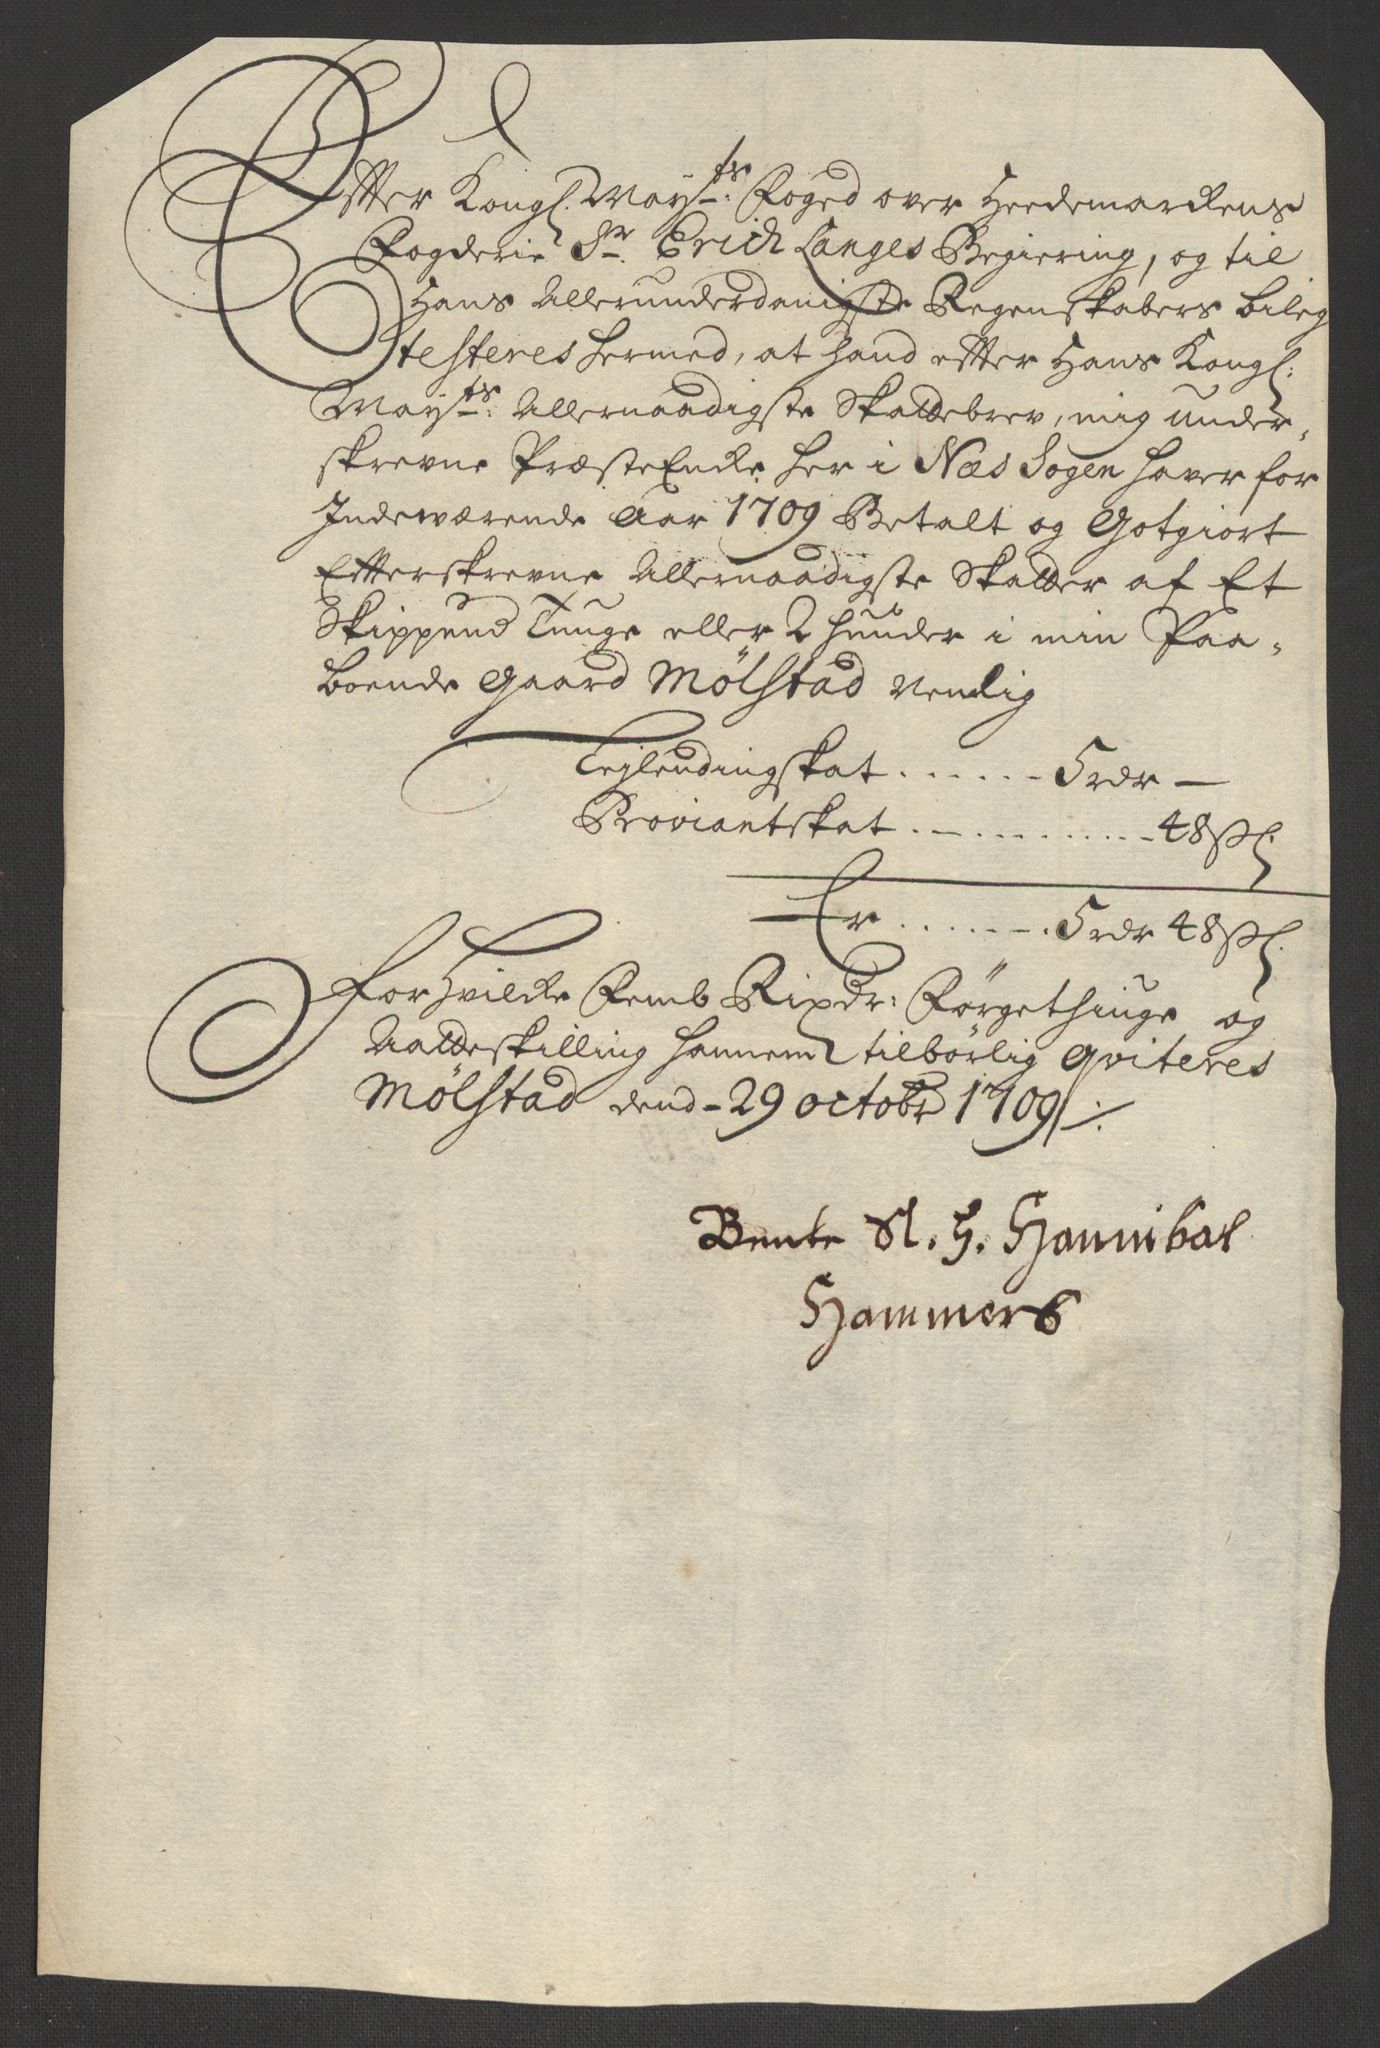 Efter Kongl. May.ts Foged over Heedemarkens
Fogderie Sr. Erich Langes Begiering, og til
Hans Allerunderdanigste Regenskabers bileg
testeres hermed, at hand efter Hans Kongl:
May.ts Allernaadigste Skattebrev, mig under,,
skrevne PræsteEncke her i Næs Sogen haver for
Indeværende Aar 1709 Betalt og Gotgiort
Efterskrevne Allernaadigste Skatter af Et
Skippund Tunge eller 2 huuder i min Paa,,
boende Gaard Mølstad nemlig
Lejlendingskat . . . . . . 5 rdr —
Proviantskat . . . . . . . . . . 48 ſſ
Er . . . . . . . 5 rdr 48 ſſ.
For hvilke Femb Rixdr: Førgethiuge og
Aatteskilling hannem tilbørlig Qviteres
Mølstad dend 29 octobr 1709 ./.
Bente Sl. H. Hannibal
Hammers